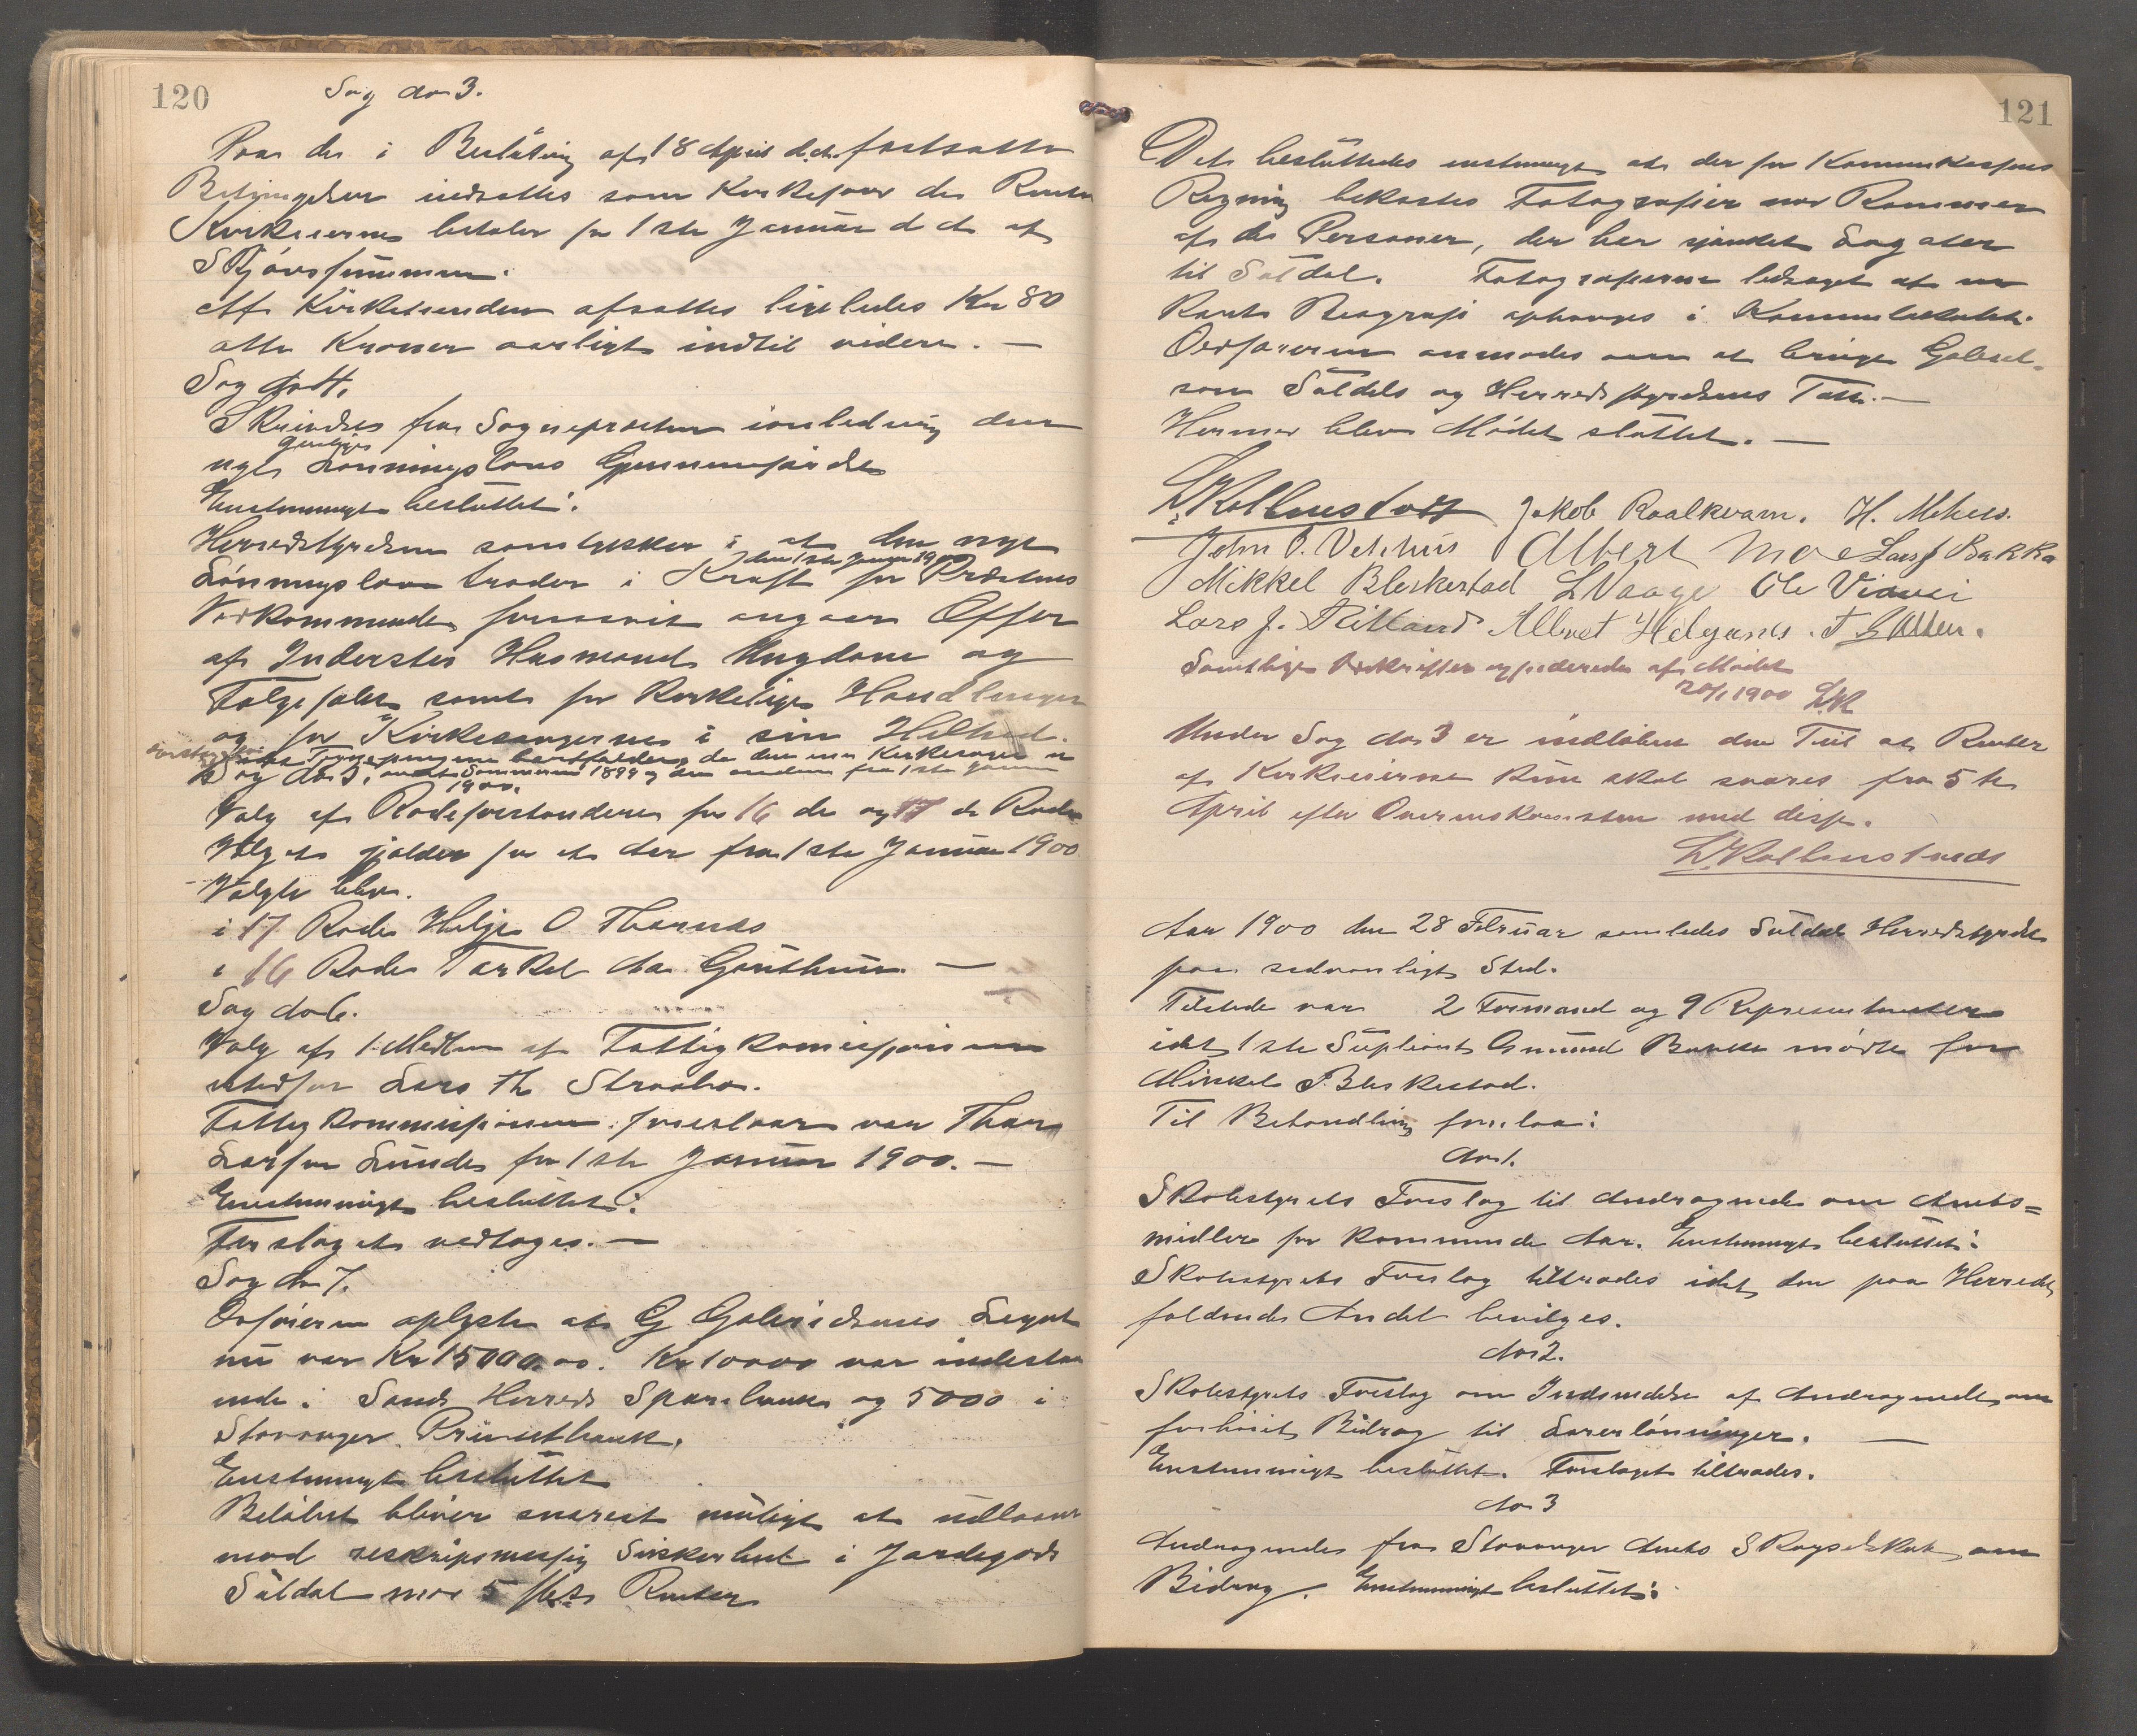 120
Sag No 3.
Paa de i Beslutning af 18 April d.A. fastsatte
Betingelser indsattes som Kirkefond de Renter
Kirkeeierne betaler fra 1ste Januar d A af
Skjønssummen.
Af Kirketienden afsattes ligeledes Kr 80
otte Kroner aarligt indtil videre. —
Sag No 4.
Skrivelse fra Sognepræsten i anledning den
geistlige
nye Lønningslovs Gjennemførelse
Enstemmigt besluttet:
Herredstyrelsen samtykker i at den nye
den 1ste Januar 1900
Lønningslov træder i Kraft for Præstens
Vedkommende forsaavit angaar Offer
af Inderster Husmænd Ungdom og
Følgefolk samt for kirkelige Handlinger
og for Kirkesangernes i sin Helhed.
Sag No 5. Sommeren 1899 den anden fra 1ste Januar
1900.
Valg af Rodeforstandere for 16 de og 17 de Rode
Valgets gjælder for et Aar fra 1ste Januar 1900
Valgte blev.
i 17 Rode Helge O Tharnes
i 16 Rode Tarkel Aa. Gauthun. —
Sag No 6.
Valg af 1 Medlem af Fattigkomissionen
istedfor Lars Th Straabø.
Fattigkommissionens foreslaar var Thor
Larsen Lunde for 1ste Januar 1900. —
Enstemmigt besluttet:
Forslaget vedtages. —
Sag No 7.
Ordføreren oplyste at G Gabrielsens Legat
nu var Kr 15000.00. Kr 10000 var indestaa
ende i Sands Herreds Sparebank og 5000 i
Stavanger Privatbank.
Enstemmigt besluttet
Beløbet bliver snarest muligt at udlaane
mod reskripsmessig Sikkerhed i Jordegods
Suldal mod 5 pct. Renter
121
Det besluttedes enstemmigt at der for Kommunekassens
Regning bekostes Fotografier med Rammer
af de Personer, der har skjænket Legater
til Suldal. Fotografierne ledsaget af en
kort Biografi ophænges i Kommunelokalet.
Ordføreren anmodes om at bringe Gabriel-
sen Suldals og Herredstyrelsens Tak. —
Hermed blev Mødet sluttet. —
L. Kolbenstvedt Jakob Raalkvam. H. Mehus.
John O. Vetrhus Albert Moe Lars J Bakka
Mikkel Bleskestad L Vaage Ole Vinjei
Lars J. Litland Albret Helgenes.
Samtlige Udskrifter expederede af Mødet
20/1 1900 LK
Under Sag No 3 er indløben den Feil at Renter
af Kirkeeierne kun skal svares fra 5te
April efter Overenskomsten med disse.
L. Kolbenstvedt
Aar 1900 den 28 Februar samledes Suldal Herredstyrelse
paa sedvanligt Sted.
Tilstede var 2 Formænd og 9 Representanter
idet 1ste Supleant Gunmund Bakka mødte for
Mikkel Bleskestad.
Til Behandling forelaa:
No 1.
Skolestyrets Forslag til Andragende om Amts=
midler for kommende Aar. Enstemmigt besluttet:
Skolestyrets Forslag tiltrædes idet den paa Herredet
faldende Andel bevilges.
No 2.
Skolestyrets Forslag om Indsendelse af Andragende om
forhøiet Bidrag til Lærerlønninger. —
Enstemmigt besluttet. Forslaget tiltrædes.
No 3
Andragende fra Stavanger Amts Skogselskab om
Bidrag. Enstemmigt besluttet: